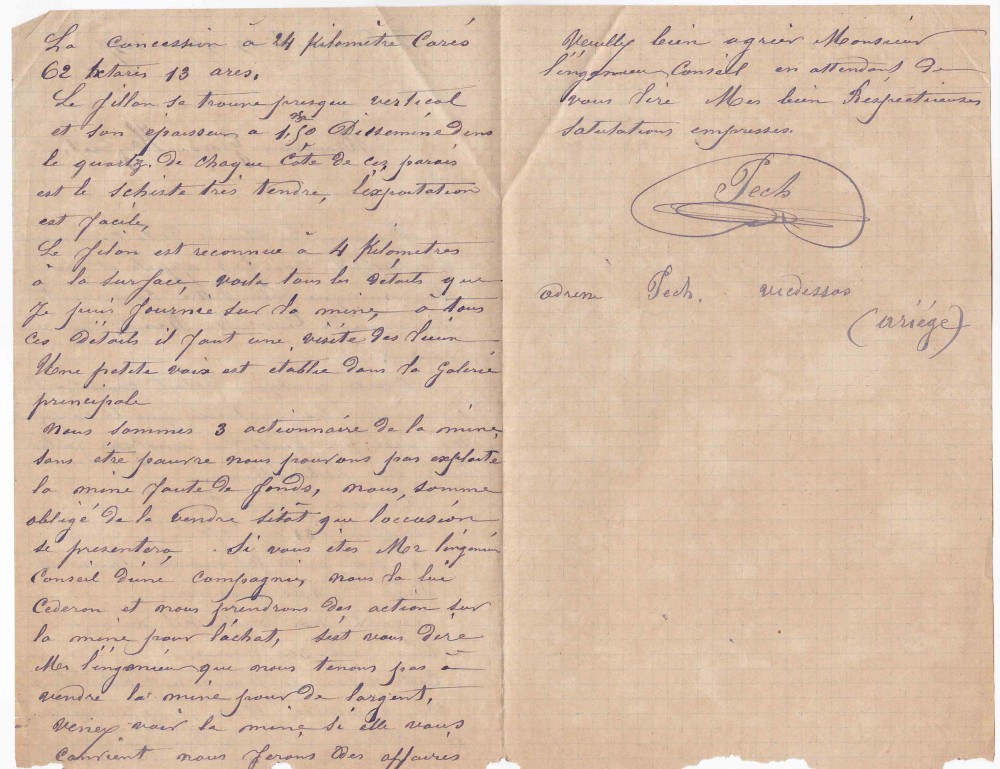 La concession à 24 Kilomètre Carés
62 hctarés 13 ares.
Le fillon se trouve presque vertical
et son épaisseur à 1,50 Disséminé dens
le quartz. de chaque Côté de cez parois
est le schiste trés tendre, l'éxportation
est facile,
Le filon est reconnue à 4 Kilométrès
à la surface, voila tous les détails que
Je puis fournir sur la mine, à tous
ces Détails il faut une visite des lieux
Une petite voix est établie dans la Galérie
principale
nous sommes 3 actionnaire de la miné,
sans étre pauvre nous pouvons pas exploite
la mine faute de fonds, nous, somme
obligé de la vendre sitôt que l'occasion
se presentera, . Si vous étes Mer l'ingénieu
Conseil d'une Compagnie, nous la lui
Cederon et nous prendrons des action sur
la mine pour l'achat, s'est vous dire
Mer l'ingénieu que nous tenons pas à
vendre la mine pour de l'argent,
venez voir la mine si elle vous
convient nous ferons des affaires
Veuilly bien agrier Monsieur
l'ingenieu Conseil en attendant de
vous lire Mes bien Réspéctieuses
salutations empresses.
Pech
adresse Pech. vicdessos
(ariége)